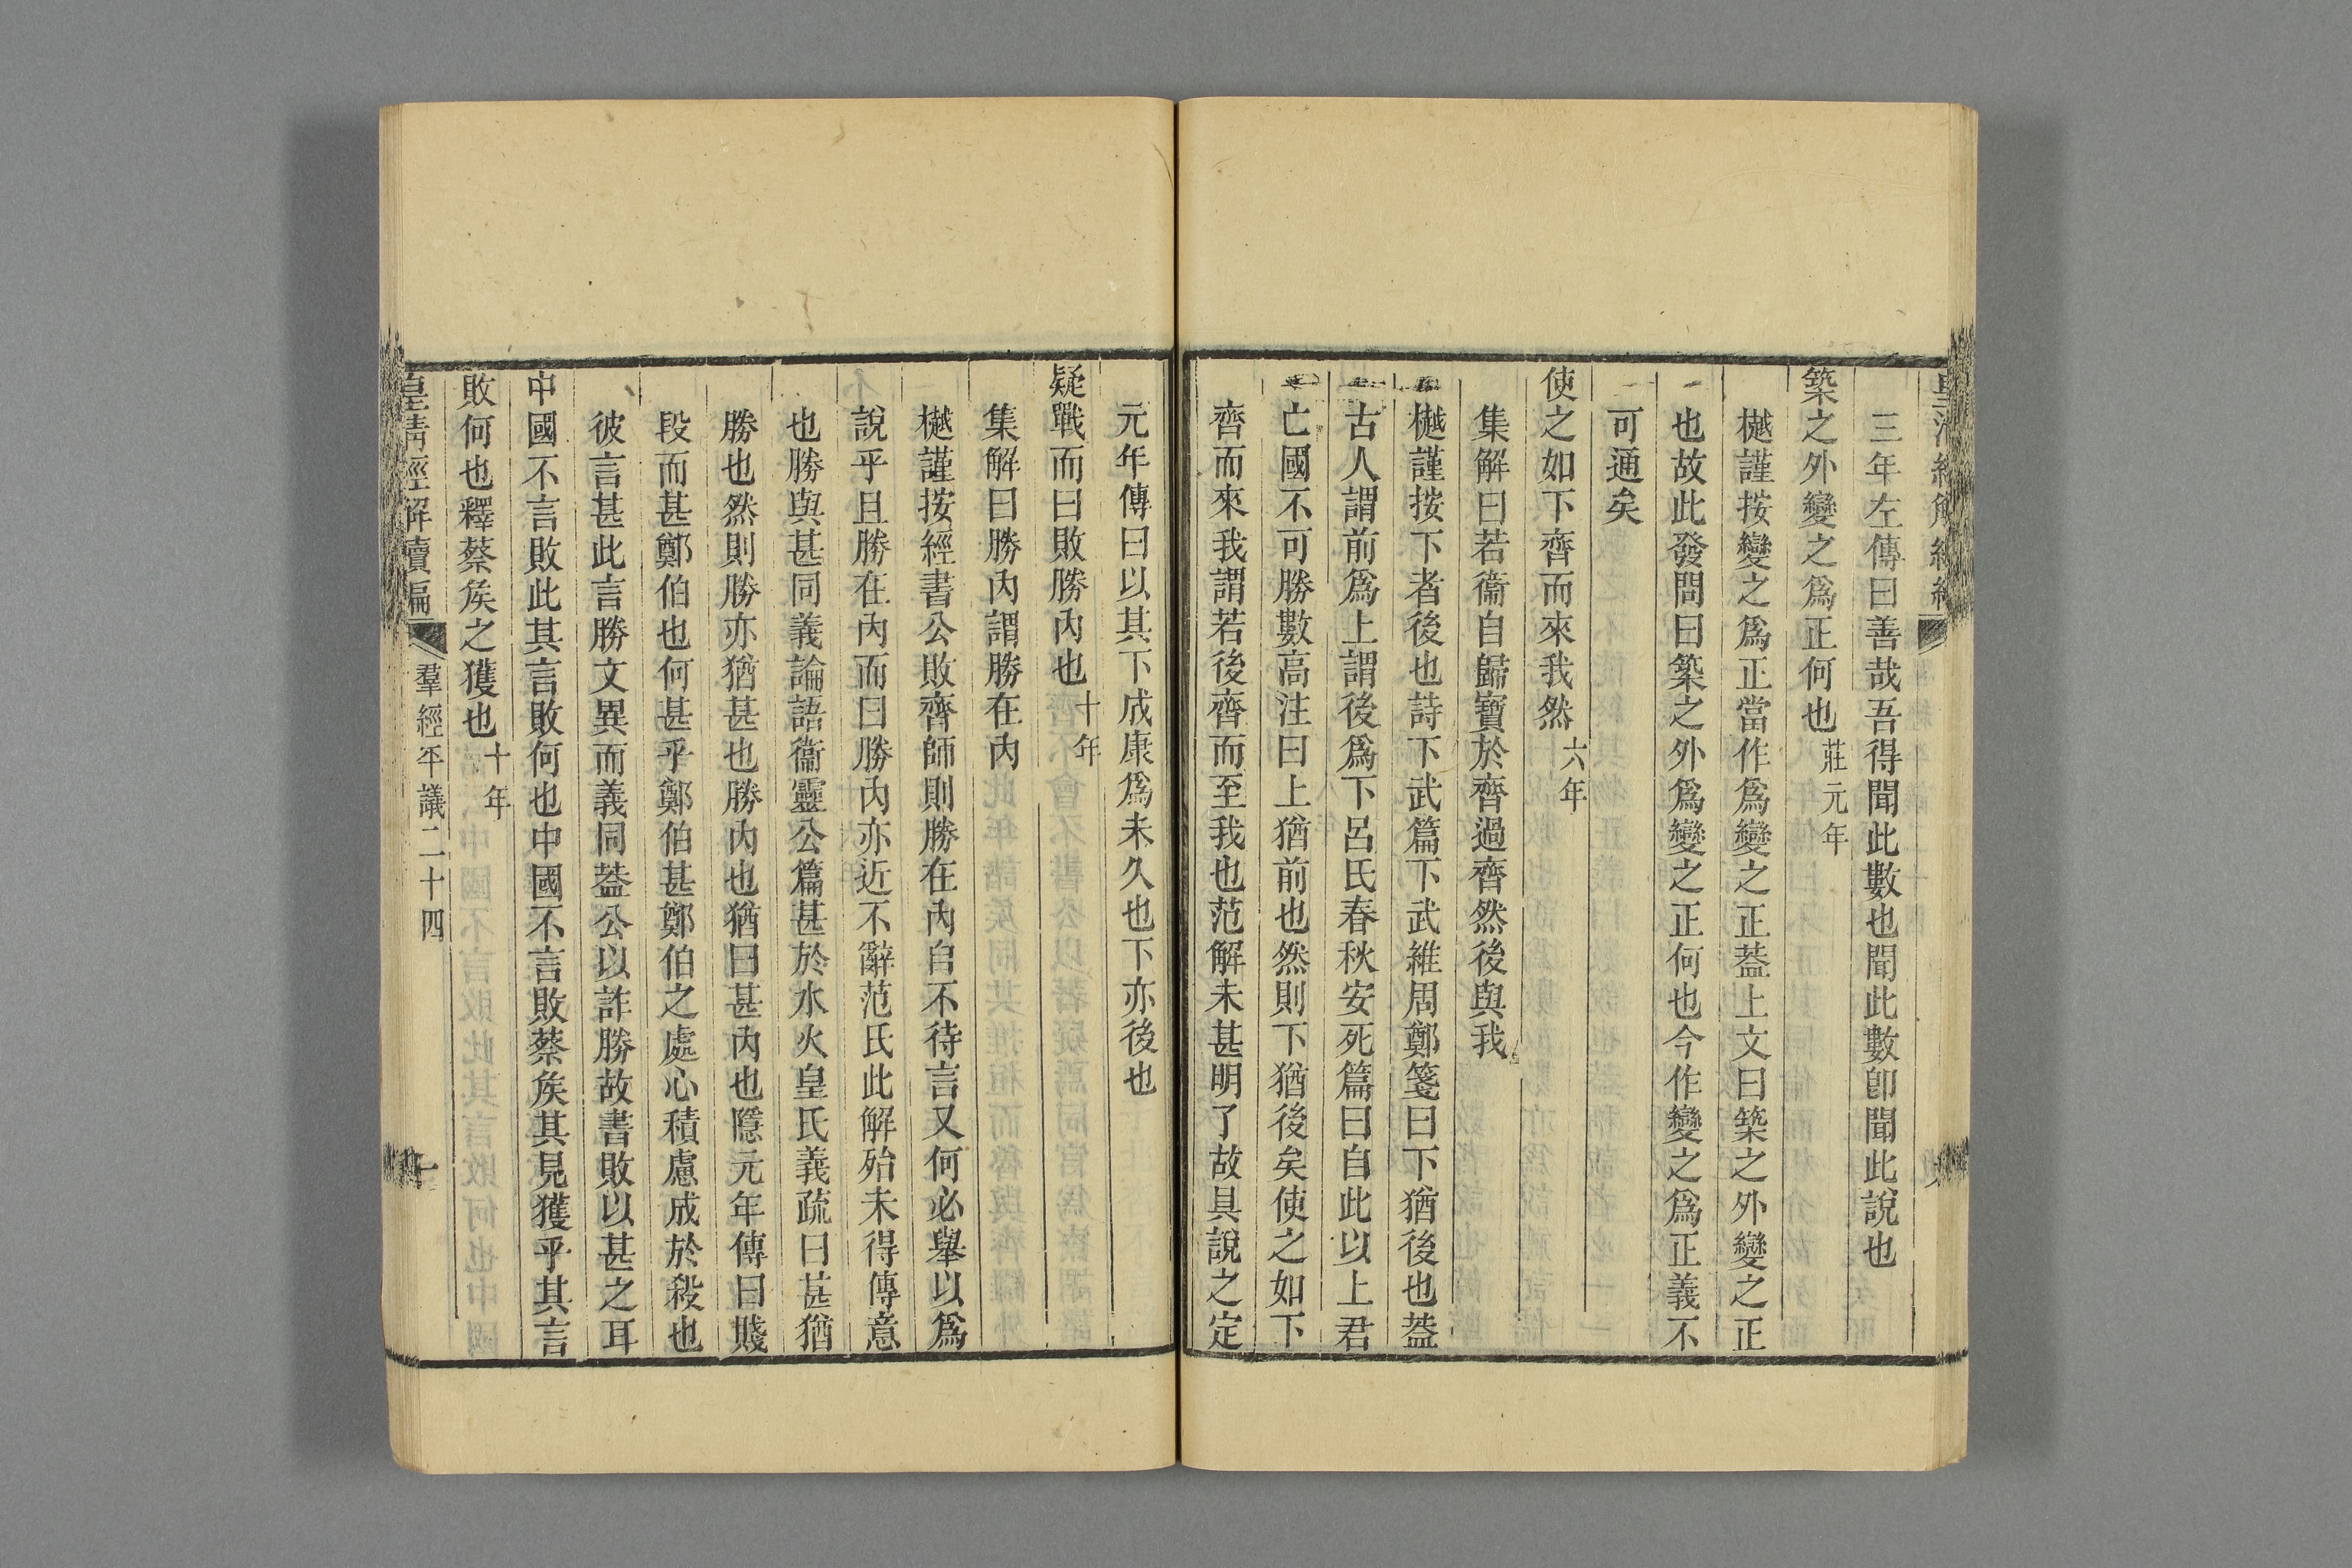 三年左傳曰善哉吾得聞此數也聞此數卽聞此說也
築之外變之爲正何也莊元年
樾謹按變之爲正當作爲變之正葢上文曰築之外變之正
也故此發問曰築之外爲變之正何也今作變之爲正義不
可通矣
使之如下齊而來我然六年
集解曰若衞自歸寶於齊過齊然後與我
樾謹按下者後也詩下武篇下武維周鄭箋曰下猶後也葢
古人謂前爲上謂後爲下呂氏春秋安死篇曰自此以上君
亡國不可勝數高注曰上猶前也然則下猶後矣使之如下
齊而來我謂若後齊而至我也范解未甚明了故具說之定
元年傳曰以其下成康爲未久也下亦後也
疑戰而曰敗勝內也十年
集解曰勝內謂勝在內
樾謹按經書公敗齊師則勝在內自不待言又何必舉以爲
說乎且勝在內而曰勝內亦近不辭范氏此解殆未得傳意
也勝與甚同義論語衞靈公篇甚於水火皇氏義疏曰甚猶
勝也然則勝亦猶甚也勝內也猶曰甚內也隱元年傳曰賤
段而甚鄭伯也何甚乎鄭伯甚鄭伯之處心積慮成於殺也
彼言甚此言勝文異而義同葢公以詐勝故書敗以甚之耳
中國不言敗此其言敗何也中國不言敗蔡矦其見獲乎其言
敗何也釋蔡矦之獲也十年
皇淸經解續編 羣經平議二十四